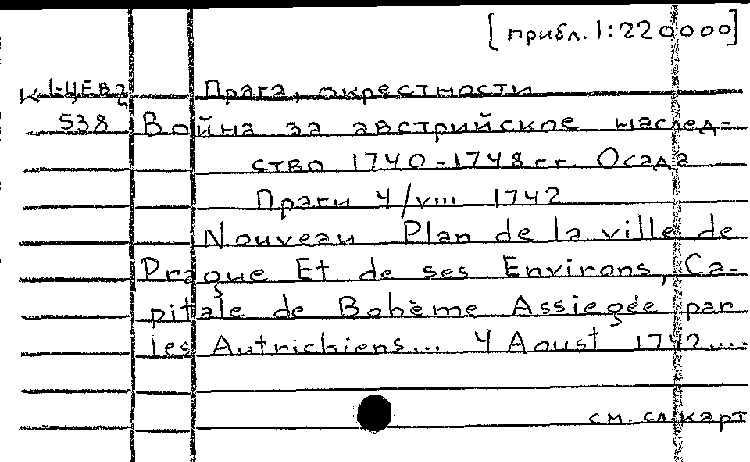 [прибл. 1:220000]
К 1-ЦЕВ2 Прага, окрестности
538 Война за австрийское наслед-
ство 1740-1748 гг. Осада
Праги 4/VIII 1742
Nouveau Plan de la ville de
Prague Et de ses Environs, Ca-
pitale de Bohème Assiegée par
les Autrichiens... 4 Aoust 1742....
см. сл. карт